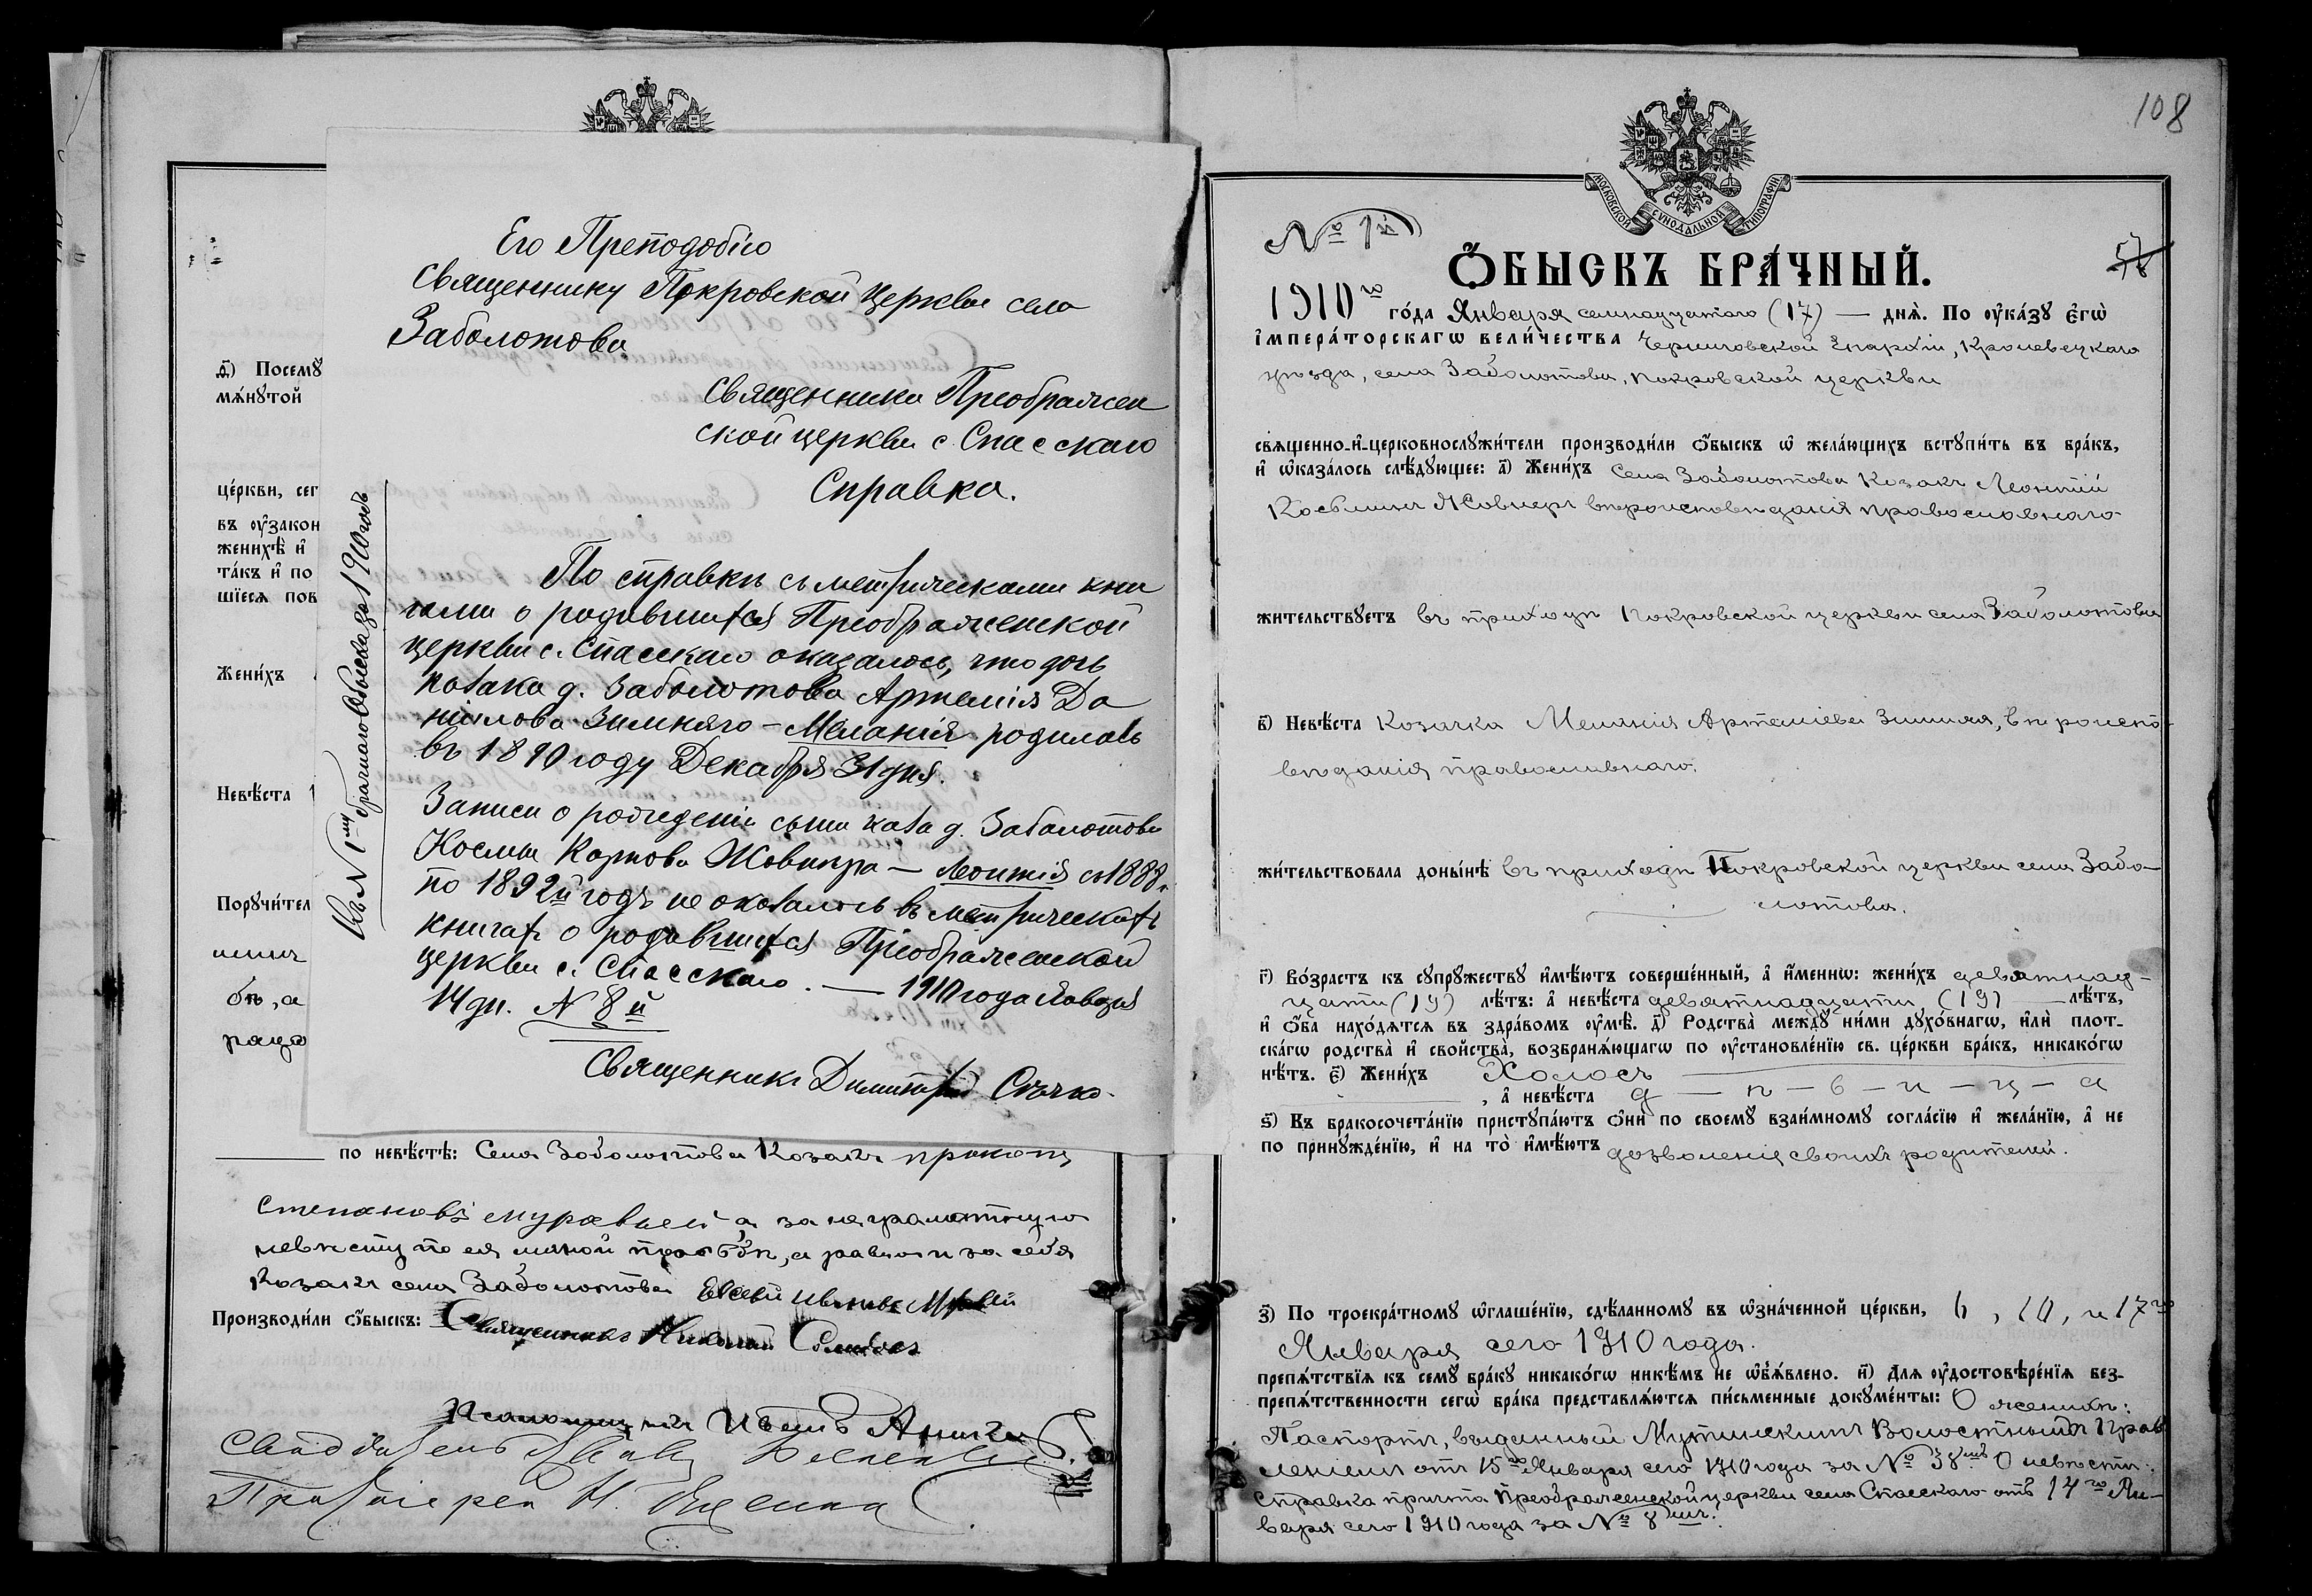 Его Преподобiю
Священнику Покровской Церкви села
Заболотова
Священника Преображен
ской церкви с. Спасскаго
Справка.
Къ № 1му брачнаго Обыска за 1910 годъ
По справкѣ съ метрическими кни
гами о родившихся Преображенской
церкви с. Спасскаго оказалось, что дочь
козака д. Заболотова Артемiя Да
нiилова Зимняго – Меланiя родилась
въ 1890 году Декабря 31 дня.
Записи о рожденiи сына каза д. Заболотова
Космы Карпова Жовнира – Леонтiя съ 1888 г.
по 1892й годъ не оказалось въ метрическихъ
книгахъ о родившихся Преображенской
церкви с. Спасскаго. — 1910 года Января
14 дн. № 8й
Священникъ Димитрiй Сѣчко.
д҃) Посемꙋ
мѧ́нꙋтой
це́ркви, сег
въ оу҆закон
женихѣ̀ и҆
та́къ и҆ по
шїесѧ пов
Жени́хъ
Невѣ́ста
Порꙋчи́тел
бѣ, а
по невѣ́стѣ: Села Заболотова Козакъ Прокопъ
Степановъ Муравьей а за неграмотную
невѣсту по ея личной просьбѣ, а равно и за себя
Козакъ села Заболотова Евсей Ивановъ Муравей
Производи́ли ѻ҆́быскъ: Священникъ Николай
Псаломщикъ Иванъ
108
МОСКОВСКОЙ СѴНОДАЛЬНОЙ ТИПОГРАФІИ
№ 1й
57
Ѻ҆́БЫСКЪ БРА́ЧНЫЙ.
1910го го́да Января семнадцатаго (17) — днѧ̀. По оу҆ка́зꙋ є҆гѡ̀
і҆мпера́торскагѡ вели́чества Черниговской Епархiи, Кролевецкаго
уѣзда, села Заболотова, Покровской церкви
свѧще́нно-и҆-церковнослꙋжи́тели производи́ли ѻ҆́быскъ ѡ҆ жела́ющихъ встꙋпи́ть въ бра́къ,
и҆ ѡ҆каза́лось слѣ́дꙋющее: а҃) Жени́хъ Села Заболотова Козакъ Леонтiй
Косьминъ Жовнеръ вѣроисповѣданiя православнаго
жи́тельствꙋетъ въ приходѣ Покровской церкви села Заболотова
в҃) Невѣ́ста Козачка Меланiя Артемiева Зимняя, вѣроиспо-
вѣданiя православнаго.
жи́тельствовала доны́нѣ въ приходѣ Покровской церкви села Забо-
лотова.
г҃) Во́зрастъ къ сꙋпрꙋ́жествꙋ и҆мѣ́ютъ соверше́нный, а҆ и҆́менно: жени́хъ девятнад-
цати (19) лѣ́тъ: а҆ невѣ́ста девятнадцати (19) — лѣ́тъ,
и҆ ѻ҆́ба нахо́дѧтсѧ въ здра́вомъ оу҆мѣ̀. д҃) Родства̀ междꙋ̀ ни́ми дꙋхо́внагѡ, и҆лѝ пло́т-
скагѡ родства̀ и҆ сво́йства̀, возбранѧ́ющагѡ по оу҆становле́нїю св. це́ркви бра́къ, никако́гѡ
нѣ́тъ. є҃) Жени́хъ Холостъ
, а҆ невѣ́ста д — ѣ — в — и — ц — а
ѕ҃) Къ бракосочета́нїю пристꙋпа́ютъ ѻ҆нѝ по своемꙋ̀ взаи́мномꙋ согла́сїю и҆ жела́нїю, а҆ не
по принꙋжде́нїю, и҆ на то̀ и҆мѣ́ютъ дозволенiя своихъ родителей.
з҃) По троекра́тномꙋ ѡ҆глаше́нїю, сдѣ́ланномꙋ въ ѡ҆зна́ченной це́ркви, 6, 10, и 17го
Января сего 1910 года.
препѧ́тствїѧ къ семꙋ̀ бра́кꙋ никако́гѡ никѣ́мъ не ѡ҆б̾ѧ́влено. и҃) Длѧ оу҆достовѣре́нїѧ без-
препѧ́тственности сегѡ̀ бра́ка представлѧ́ютсѧ пи́сьменные докꙋме́нты: О женихѣ:
Паспортъ, выданный Мутинскимъ Волостнымъ Прав
ленiемъ отъ 15го Января сего 1910 года за № 38мъ О невѣстѣ:
Справка причта Преображенской церкви села Спасскаго отъ 14го Ян-
варя сего 1910 года за № 8мъ.